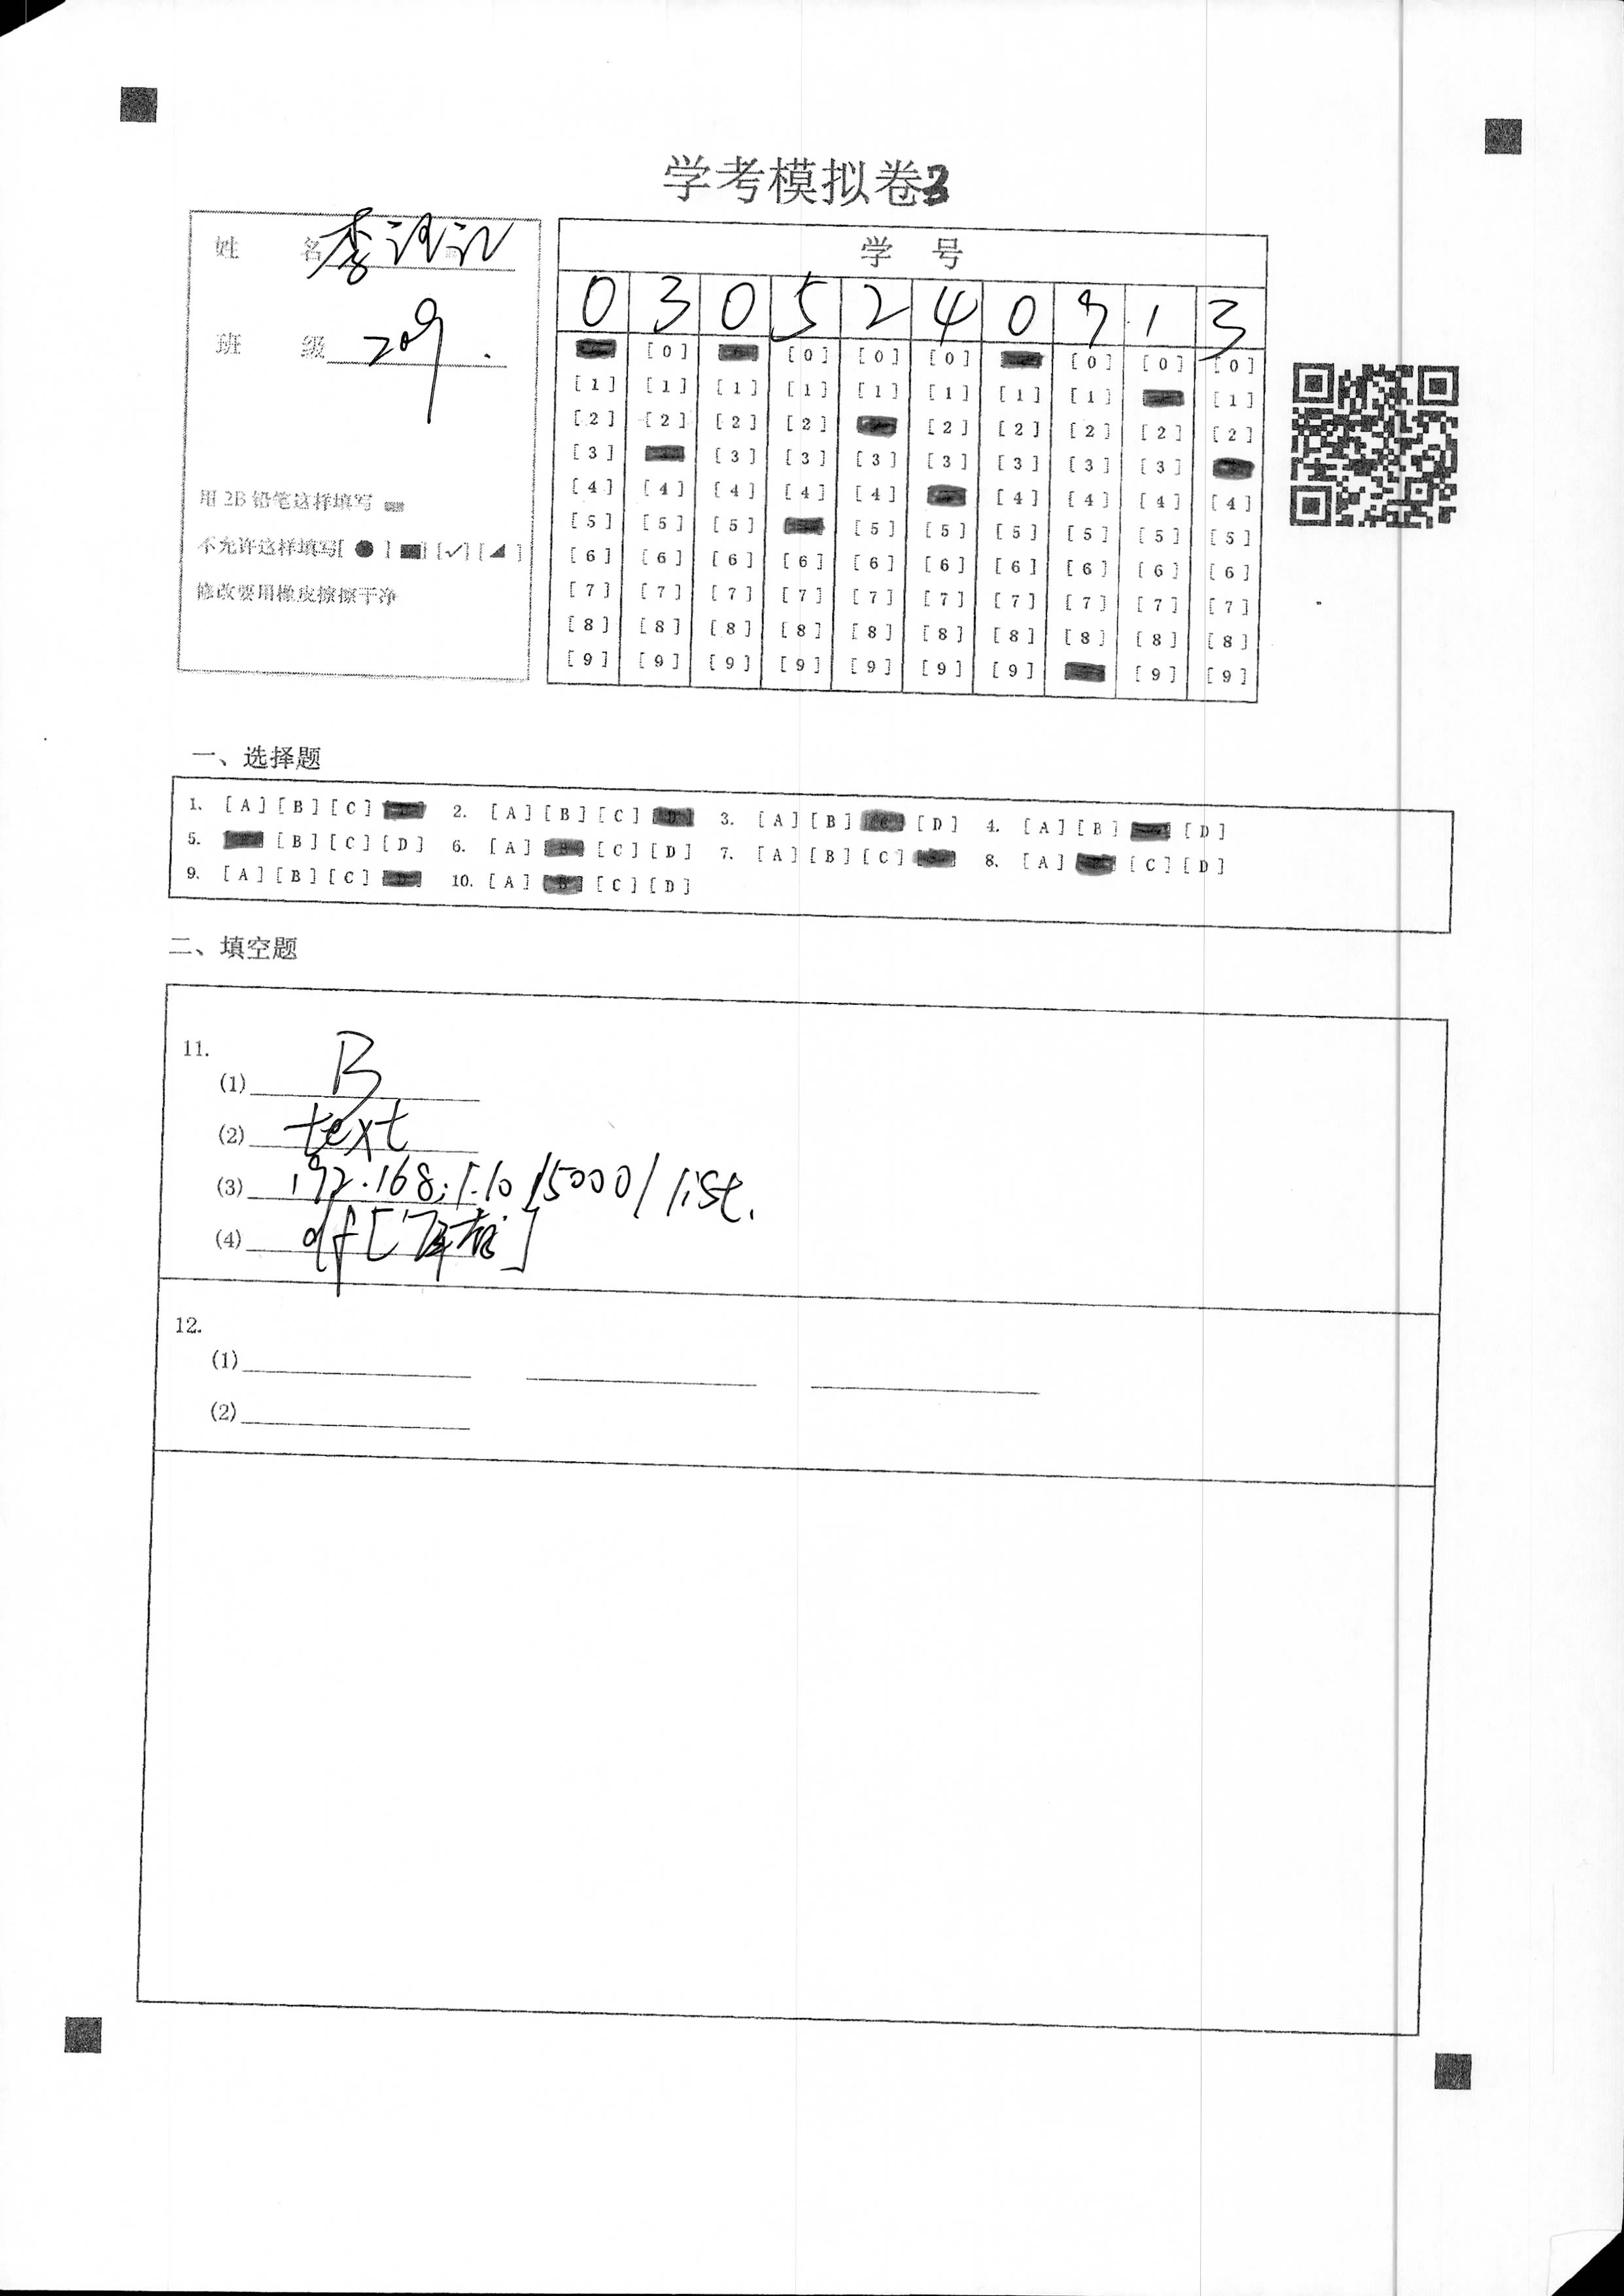 学考模拟卷3
姓 名 李
班 级 209.
用 2B 铅笔这样填写
不允许这样填写[ ● ] ■] [✓] [◢ ]
修改要用橡皮擦擦干净
学 号
0 3 0 5 2 4 0 9 1 3
[0] [0] [0] [0] [0] [0] [0]
[1] [1] [1] [1] [1] [1] [1] [1] [1]
[2] [2] [2] [2] [2] [2] [2] [2] [2]
[3] [3] [3] [3] [3] [3] [3] [3]
[4] [4] [4] [4] [4] [4] [4] [4] [4]
[5] [5] [5] [5] [5] [5] [5] [5] [5]
[6] [6] [6] [6] [6] [6] [6] [6] [6] [6]
[7] [7] [7] [7] [7] [7] [7] [7] [7] [7]
[8] [8] [8] [8] [8] [8] [8] [8] [8] [8]
[9] [9] [9] [9] [9] [9] [9] [9] [9]
一、选择题
1. [A] [B] [C] 2. [A] [B] [C] [D] 3. [A] [B] [C] [D] 4. [A] [B] [D]
5. [B] [C] [D] 6. [A] [B] [C] [D] 7. [A] [B] [C] 8. [A] [C] [D]
9. [A] [B] [C] [D] 10. [A] [B] [C] [D]
二、填空题
11.
(1) B
(2) text
(3) 192.168.1.10/5000/list.
(4)
12.
(1)
(2)